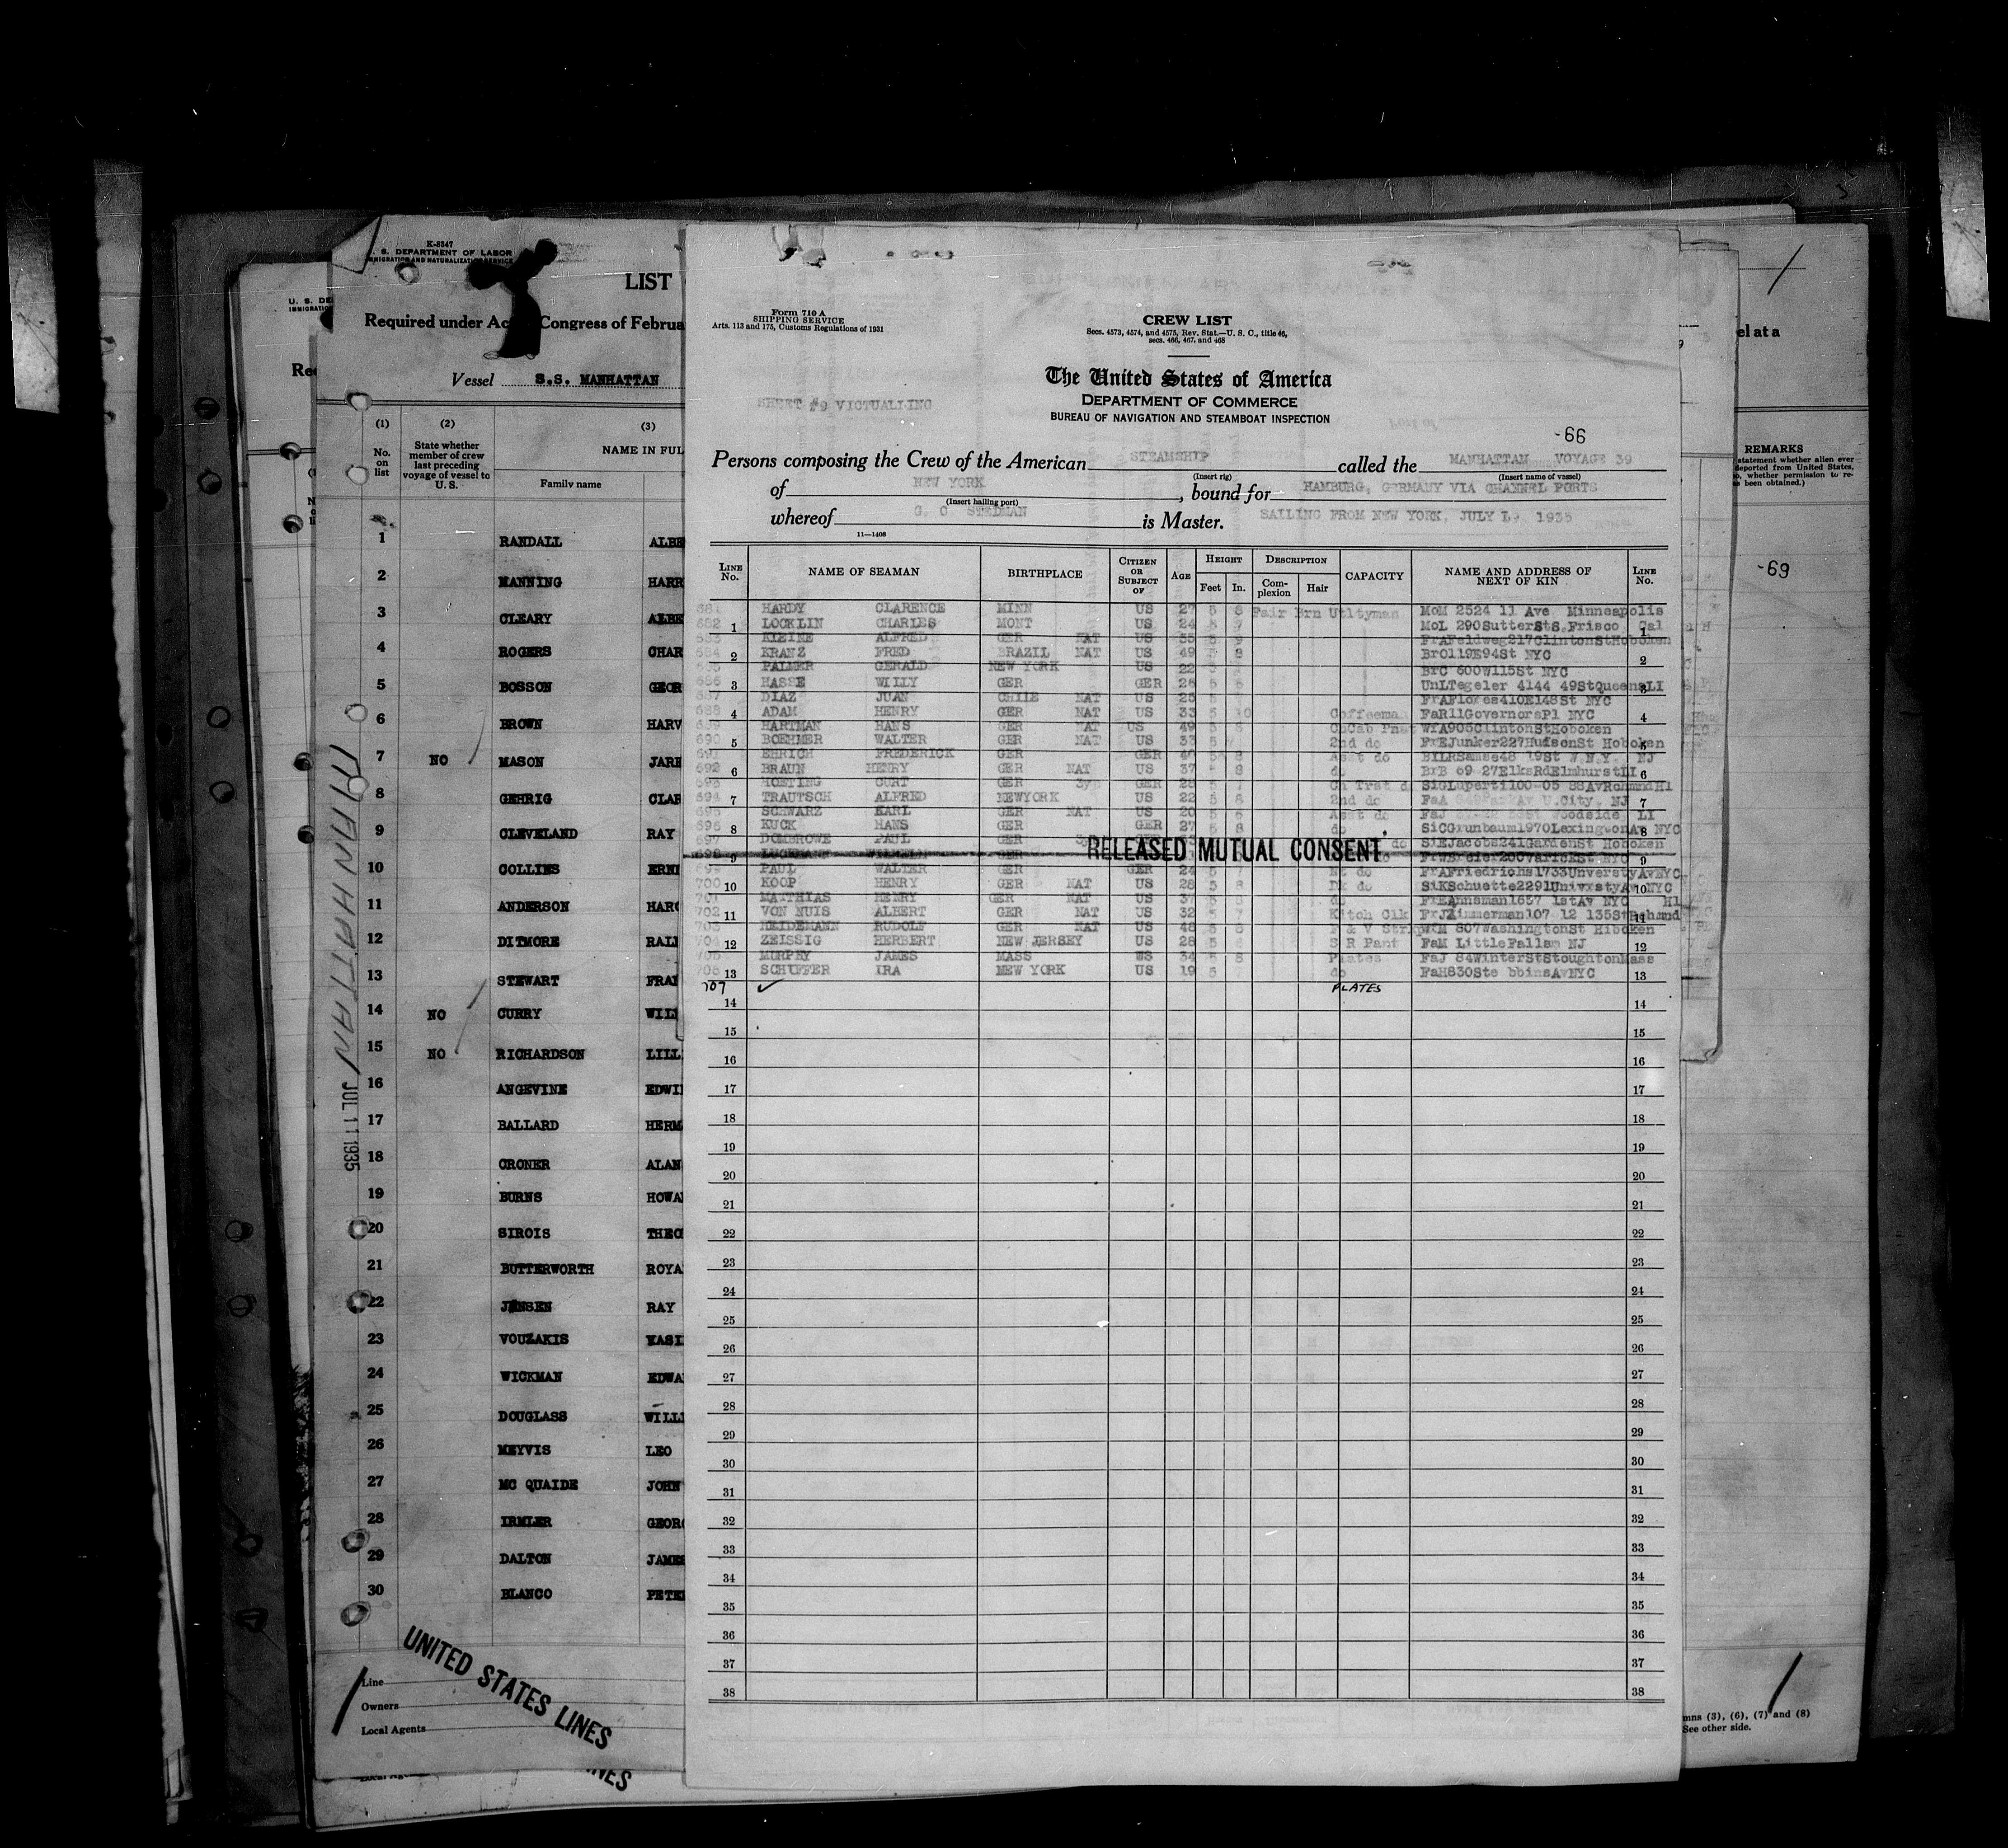 K-8347
U. S. DEPARTMENT OF LABOR
IMMIGRATION AND NATURALIZATION SERVICE
LIST
Required under Act Congress of Februa
Vessel S.S. MANHATTAN
(1) (2) (3)
No. on list
State whether member of crew last preceding voyage of vessel to U. S.
NAME IN FUL
Family name
1 RANDALL ALBE
2 MANNING HARR
3 CLEARY ALBE
4 ROGERS CHAR
5 BOSSON GEOR
6 BROWN HARV
7 NO MASON JARE
8 GEHRIG CLAR
9 CLEVELAND RAY
10 COLLIES ERNI
11 ANDERSON HARO
12 DITMORE RALI
13 STEWART FRAN
14 NO CURRY WILL
15 NO RICHARDSON LILL
16 ANGEVINE EDWI
17 BALLARD HERM
18 CRONER ALAN
19 BURNS HOWA
20 SIROIS THEO
21 BUTTERWORTH ROYA
22 JENSEN RAY
23 VOUZAKIS VASI
24 WICKMAN EDWA
25 DOUGLASS WILLI
26 MEYVIS LEO
27 MC QUAIDE JOHN
28 IRMLER GEOR
29 DALTON JAMES
30 BLANCO PETE
MANHATTAN JUL 11 1935
Line
Owners
Local Agents
UNITED STATES LINES
Form 710 A
SHIPPING SERVICE
Arts. 113 and 175, Customs Regulations of 1931
CREW LIST
Secs. 4573, 4574, and 4575, Rev. Stat.—U. S. C., title 46,
secs. 466, 467, and 468
The United States of America
DEPARTMENT OF COMMERCE
BUREAU OF NAVIGATION AND STEAMBOAT INSPECTION
SHEET #9 VICTUALLING
-66
Persons composing the Crew of the American STEAMSHIP called the MANHATTAN VOYAGE 39
(Insert rig) (Insert name of vessel)
of NEW YORK, bound for HAMBURG, GERMANY VIA CHANNEL PORTS
(Insert hailing port)
whereof G. C STEDMAN is Master. SAILING FROM NEW YORK, JULY 1935
11—1408
LINE No. NAME OF SEAMAN BIRTHPLACE CITIZEN OR SUBJECT OF AGE HEIGHT Feet In. DESCRIPTION Complexion Hair CAPACITY NAME AND ADDRESS OF NEXT OF KIN LINE No.
681 HARDY CLARENCE MINN US 27 5 8 Fair Brn Utltyman MoM 2524 11 Ave Minneapolis
682 LOCKLIN CHARLES MONT US 24 MoL 290SutterStS.Frisco Cal
683 KLEINE ALFRED GER NAT US 35 FrAFeldweg217ClintonStHoboken
684 KRANZ FRED BRAZIL NAT US 49 BrO119E94St NYC
685 PALMER GERALD NEW YORK US 22 BrC 600W115St NYC
686 HASSE WILLY GER GER 26 UnLTegeler 4144 49StQueensLI
687 DIAZ JUAN CHILE NAT US 25 FrAFlores410E148St NYC
688 ADAM HENRY GER NAT US 33 5 10 Coffeeman FaR11GovernorsPl NYC
689 HARTMAN HANS GER NAT US 49 WfA905ClintonStHoboken
690 BOEHMER WALTER GER NAT US 33 2nd do FrEJunker227HudsonSt Hoboken
691 EHRICH FREDERICK GER GER 40 Asst do
692 BRAUN HENRY GER NAT US 37 5 8 do BrB 69 27ElksRdElmhurstLI
693 HOETING CURT GER GER 28
694 TRAUTSCH ALFRED NEWYORK US 22 5 8 2nd do
695 SCHWARZ KARL GER NAT US 20 Asst do
696 KUCK HANS GER GER 27 5 8 do SiCGrunbaum1970LexingtonAv NYC
697 DOMBROWE PAUL GER SiEJacobs241GardenSt Hoboken
698
RELEASED MUTUAL CONSENT
699 PAUL WALTER GER GER 24 FrAFriedrichs1733UnverstyAvNYC
700 KOOP HENRY GER NAT US 28 5 8 Dk do SiKSchuette2291UnivrstyAv NYC
701 MATTHIAS HENRY GER NAT US 37 do FrEAnnsman1657 1stAv NYC
702 VON NUIS ALBERT GER NAT US 32 5 7 Kitch Clk FrJZimmerman107 12 135StRchmnd H1
703 HEIDEMANN RUDOLF GER NAT US 48 F & V Strkpr WfM 807WashingtonSt Hiboken
704 ZEISSIG HERBERT NEW JERSEY US 28 S R Pant FaM LittleFallsm NJ
705 MURPHY JAMES MASS WS 34 5 8 Plates FaJ 84WinterStStoughtonMass
706 SCHUFFER IRA NEW YORK US 19 do FaH830Ste bbinsAvNYC
707 ✓ PLATES
1
2
3
4
5
6
7
8
9
10
11
12
13
14
15
16
17
18
19
20
21
22
23
24
25
26
27
28
29
30
31
32
33
34
35
36
37
38
el at a
REMARKS
-69
mns (3), (6), (7) and (8)
See other side.